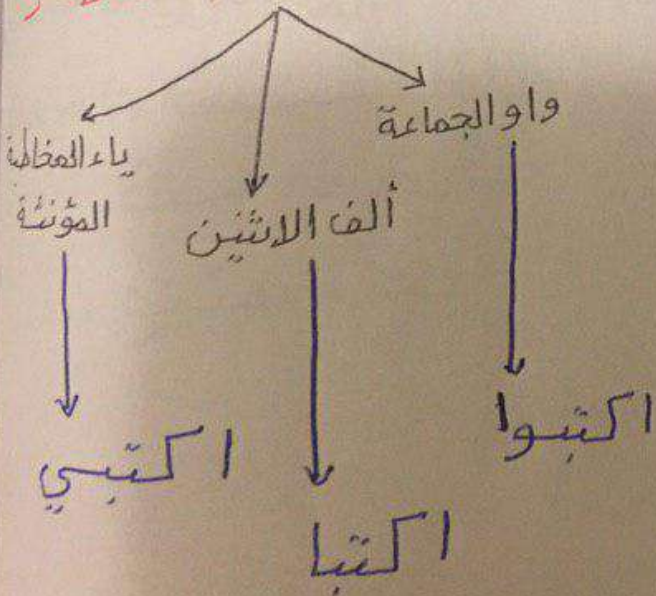 واو الجماعة
ألف الاثنين
ياء المخاطبة
المؤنثة
اكتبوا
اكتبا
اكتبي